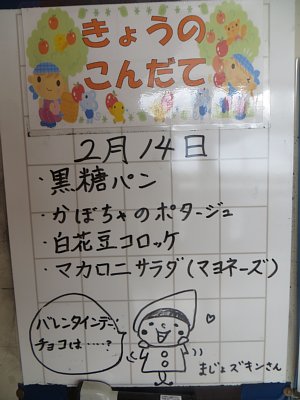 きょうの
こんだて
2月14日
・黒糖パン
・かぼちゃのポタージュ
・白花豆コロッケ
・マカロニサラダ(マヨネーズ)
バレンタインデー・
チョコは……?
まじょズキンさん